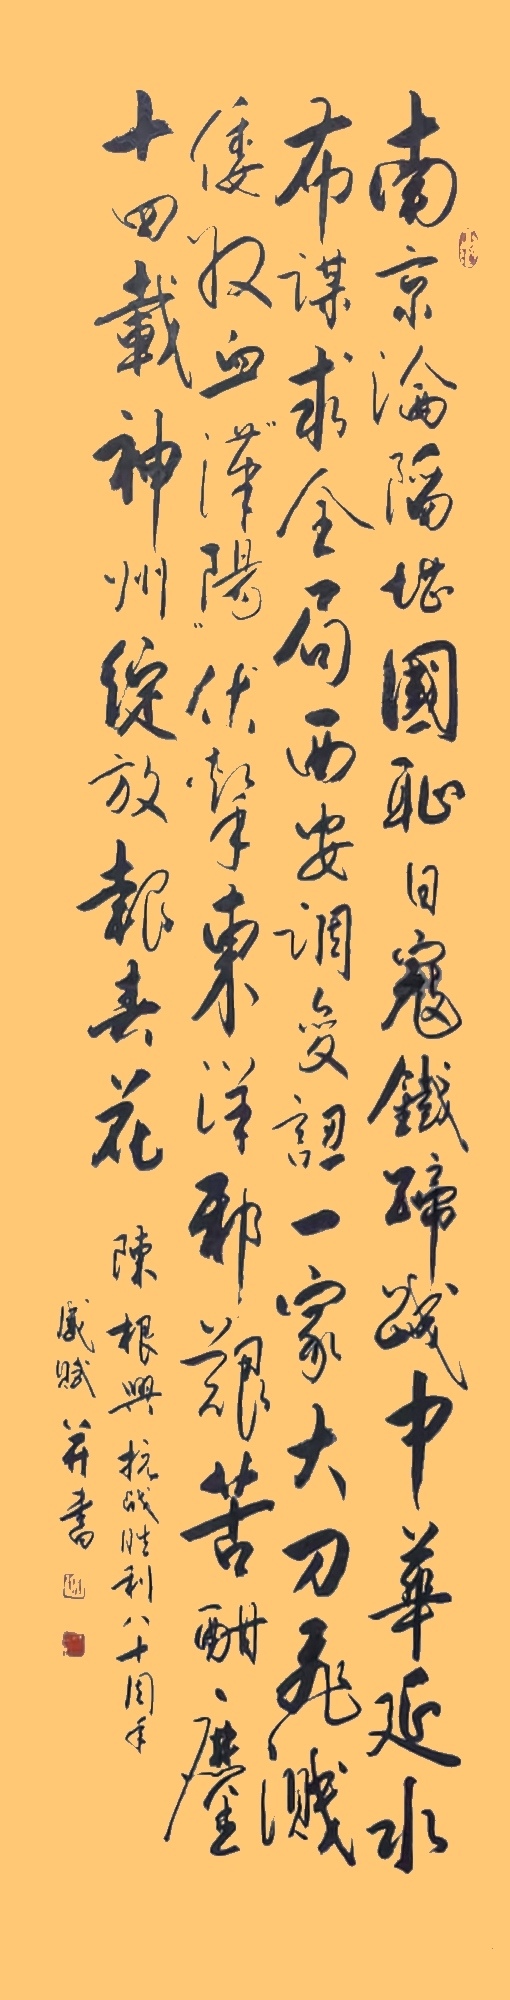 南京淪陷堪國恥日寇鐵蹄踐中華延水
布謀求全局西安調變認一家大刀飛濺
倭奴血"漢陽"伏擊東洋邪艱苦酣鏖
十四載神州綻放報春花
陳根興抗战胜利八十周年
感賦并書